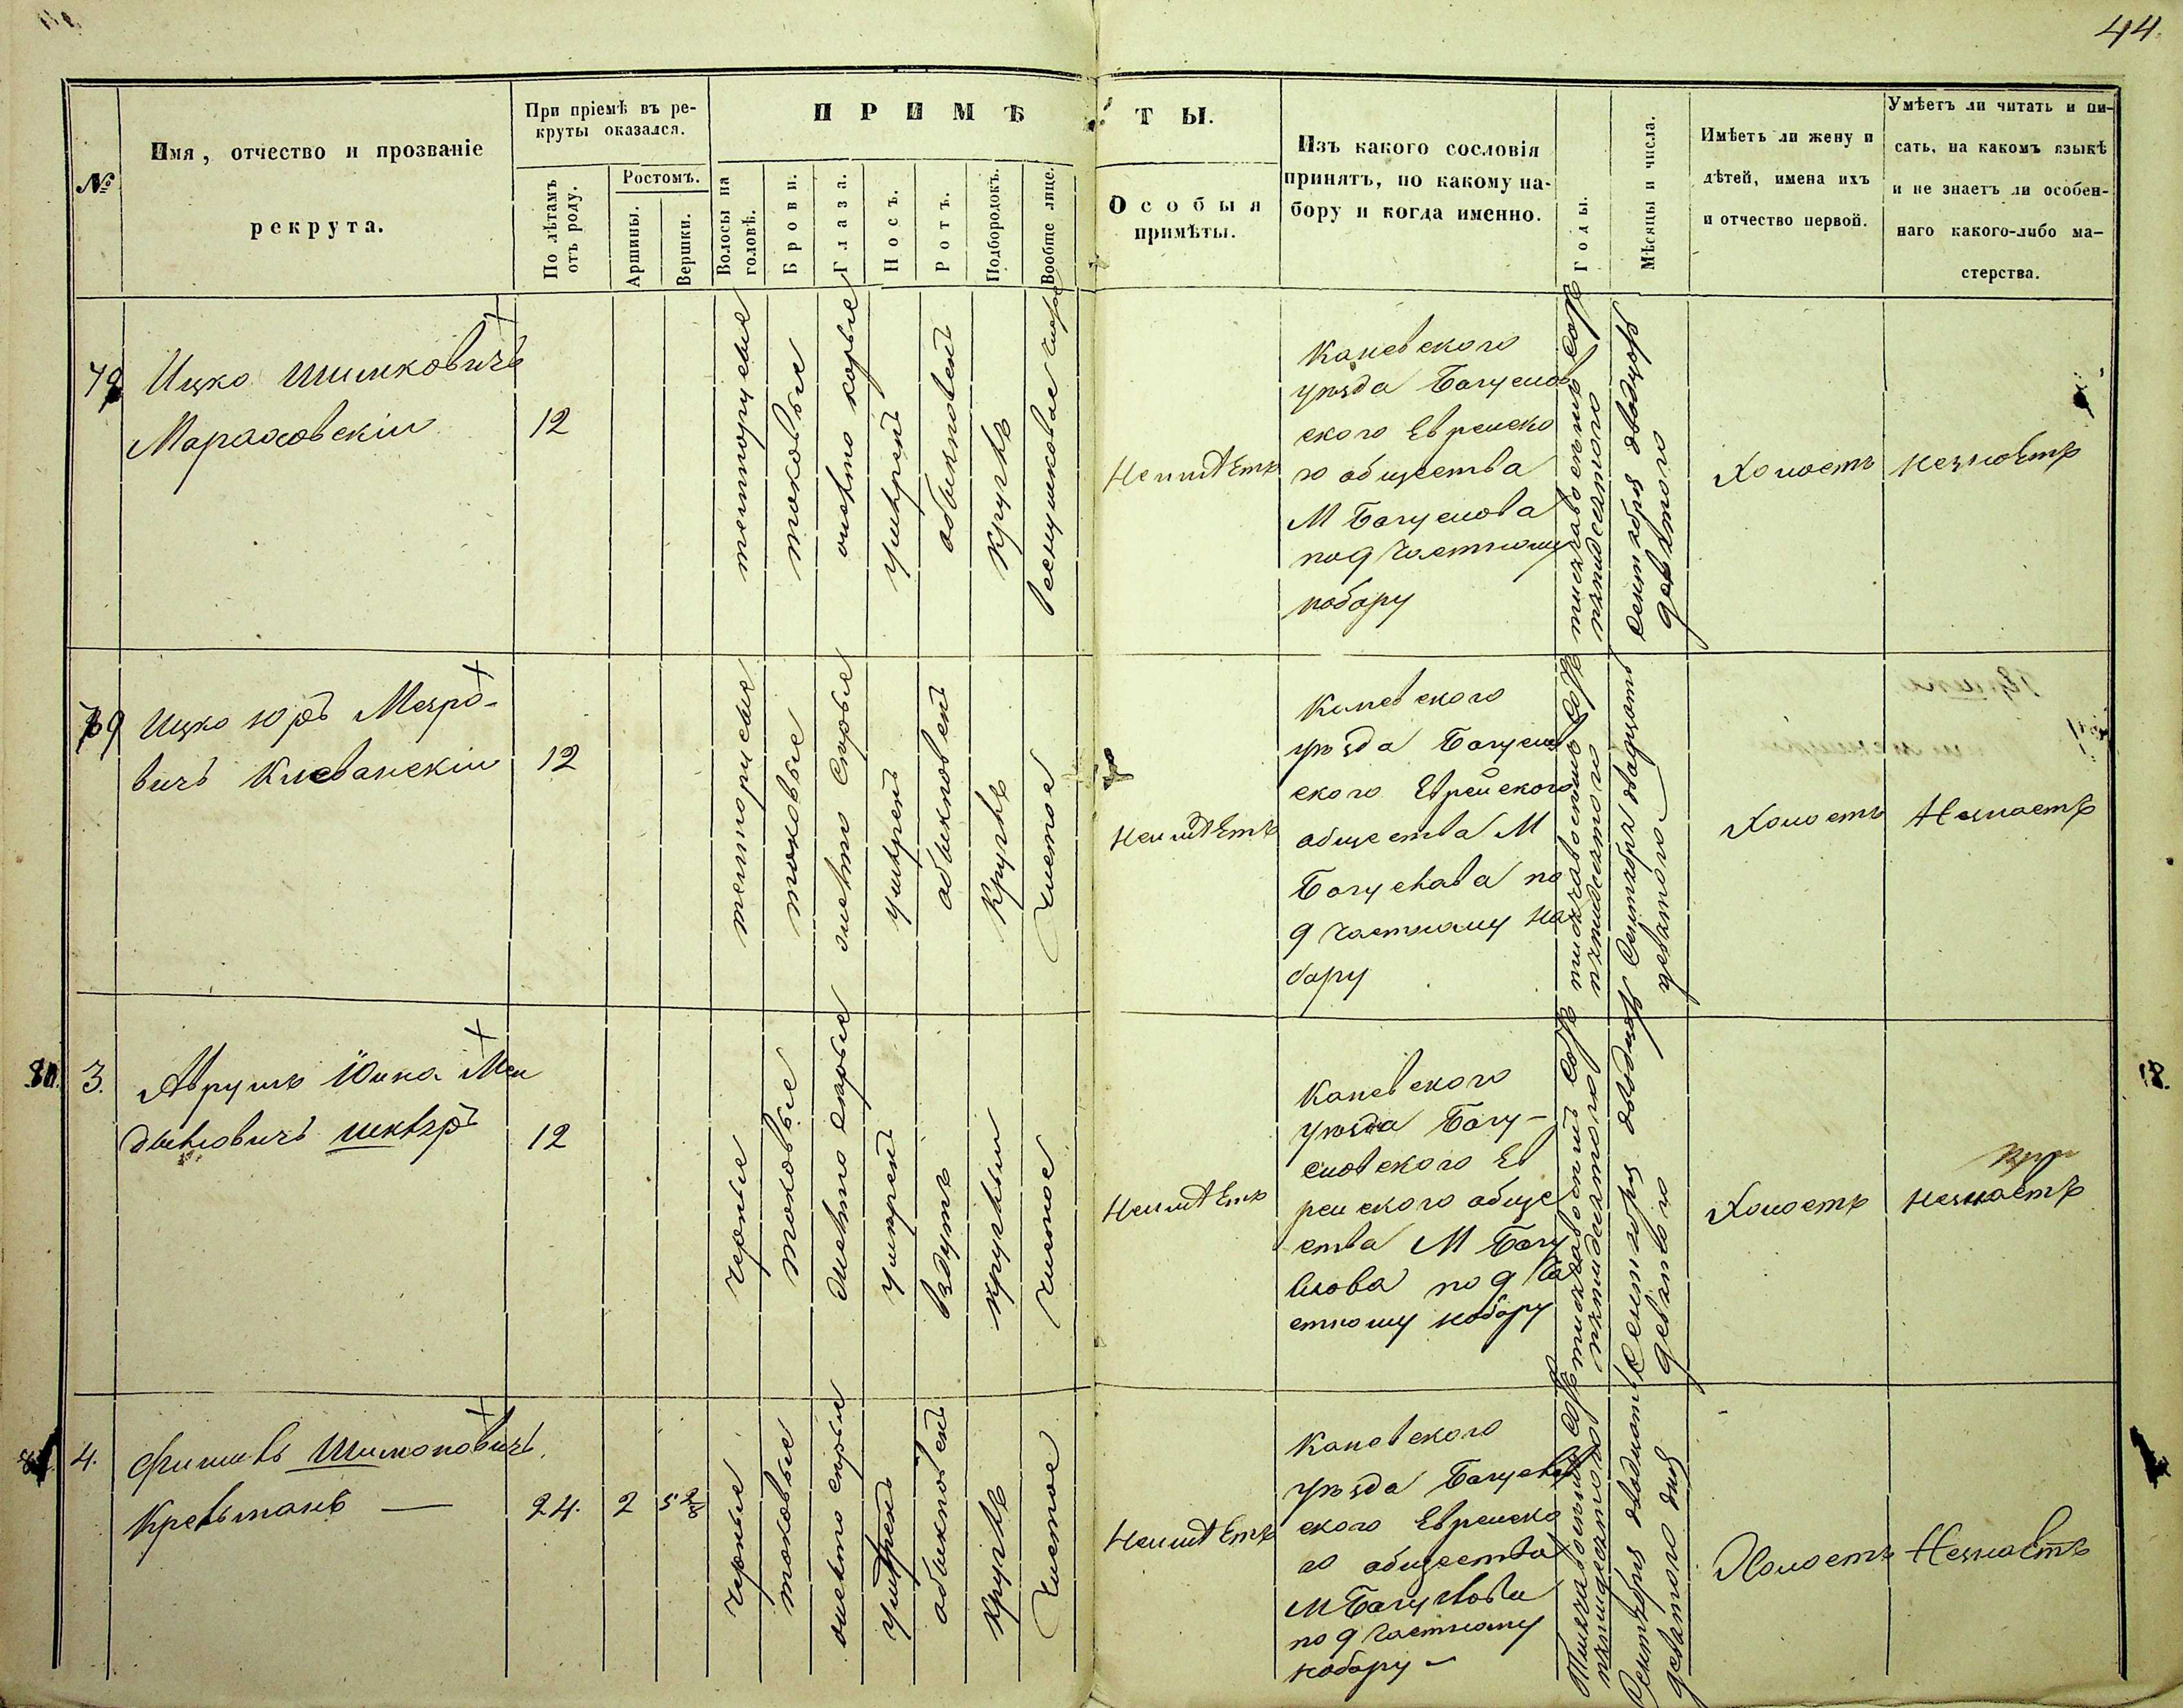 44.
№
Имя, отчество и прозваніе
рекрута.
При пріемѣ въ ре-
круты оказался.
По лѣтамъ
отъ роду.
Ростомъ.
Аршины.
Вершки.
ПРИМѢТЫ.
Волосы на
головѣ.
Брови.
Глаза.
Носъ.
Ротъ.
Подбородокъ.
Вообще лице.
Особыя
примѣты.
Изъ какого сословія
принятъ, по какому на-
бору и когда именно.
Годы.
Мѣсяцы и числа.
Имѣетъ ли жену и
дѣтей, имена ихъ
и отчество первой.
Умѣетъ ли читать и пи-
сать, на какомъ языкѣ
и не знаетъ ли особен-
наго какого-либо ма-
стерства.
Ицко Шимковичъ
Мараховскій
12
темнорусые
таковые
карые
умѣрен
обыкновен
кругл
Неимѣетъ
Каневского
уезда Богуслов
ского Еврейско
го общества
М Богуслова
по 9 частному
набору
тысяча восемьсотъ
пятидесятого
Сентября двадцать
девятого
Холостъ
незнаетъ
79
Ицко Юръ
вичъ
12
темнорусые
таковые
серые
умѣрен
обыкновен
кругл
чистое
Неимѣетъ
Каневского
уезда Богуслов
ского Еврейского
общества М
Богуслава по
9 частному на
бору
тысяча восемьсотъ
пятидесятого
Сентября двадцать
девятого
Холостъ
Незнаетъ
80.
3.
Аврумъ Юнка Мен
делевичъ
12
черные
таковые
серые
умѣрен
кругл
чистое
Неимѣетъ
Каневского
уезда Богу-
словского Ев
рейского обще
ства М Богу
слова по 9 ча
стному набору
тысяча восемьсотъ
пятидесятого
Сентября двадцать
девятого
Холостъ
незнаетъ
4.
Фишель Шимоновичъ
24.
2
5 2/8
черные
таковые
серые
умѣрен
обыкновен
кругл
чистое
Неимѣетъ
Каневского
уезда Богуслов
ского Еврейско
го общества
М Богуслова
по 9 частному
набору
Тысяча восемьсотъ
пятидесятого
Сентября двадцать
девятого дня
Холостъ
Незнаетъ